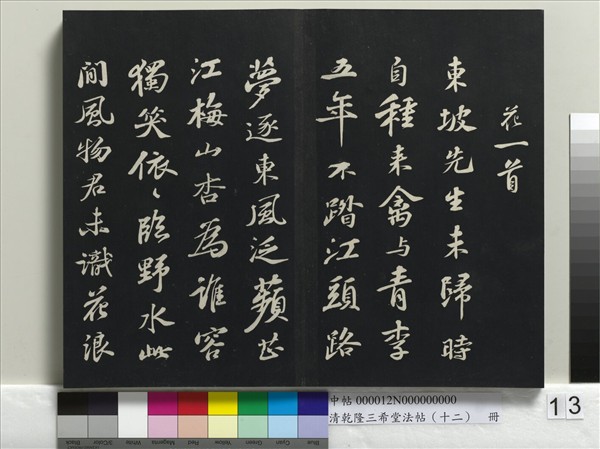 花一首
東坡先生未歸時
自種来禽与青李
五年不踏江頭路
夢逐東風泛蘋芷
江梅山杏為誰容
獨笑依〻臨野水此
間風物君未識花浪
中帖 000012N000000000
清乾隆三希堂法帖（十二） 冊
13
Blue Cyan Green Yellow Red Magenta White 3/Color Black